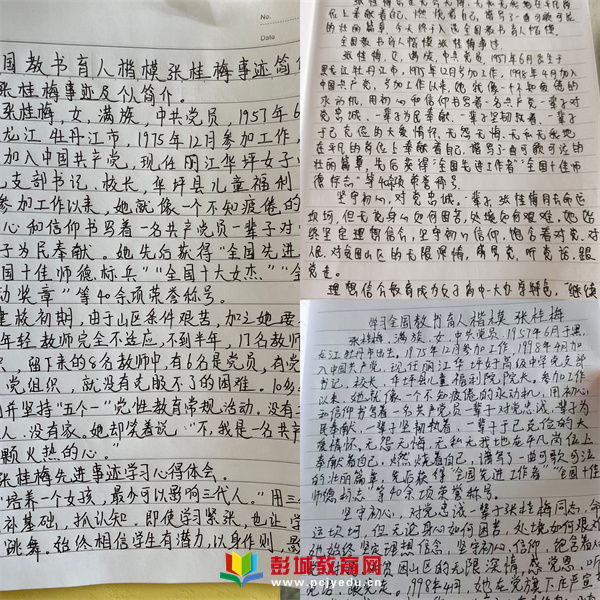 No.
Date
国教书育人楷模张桂梅事迹简
张桂梅事迹及个人简介。
张桂梅,女,满族,中共党员,1957年6
龙江牡丹江市,1975年12月参加工作,
加入中国共产党,现任丽江华坪女子
支部书记、校长,华坪县儿童福利
参加工作以来,她就像一个不知疲倦的
心和信仰书写着一名共产党员一辈子对
子为民奉献。她先后获得“全国先进
国十佳师德标兵”“全国十大女杰”“全
动奖章”等40余项荣誉称号。
建校初期,由于山区条件艰苦,加之她要
年轻教师完全不适应,不到半年,17名教师
,留下来的8名教师中,有6名是党员,有党
党组织,就没有克服不了的困难。10多
并坚持“五个一”党性教育常规活动。没有
人、没有家。她却笑着说:“不,我是一名共产
颗火热的心。”
张桂梅先进事迹学习心得体会。
“培养一个女孩,最少可以影响三代人。”用三
补基础,抓认知。即使学习紧张,也让学
跳舞。始终相信学生有潜力,以身作则,
位上奉献着自己,燃烧着自己,谱写了一曲可歌可泣
的壮丽篇章,
全国教书育人楷模张桂梅事迹
张桂梅,女,满族,中共党员,1957年6月出生于
黑龙江牡丹江市,1975年12月参加工作,1998年4月加入
中国共产党,参加工作以来,她就像一个不知疲倦的
永动机,用初心和信仰书写着一名共产党员一辈子对
党忠诚、一辈子为民奉献、一辈子坚韧执着、一辈子
于己克俭的大爱情怀。无怨无悔、无私无我地
在平凡的岗位上奉献着自己,谱写了一曲可歌可泣的
壮丽篇章,先后获得“全国先进工作者”“全国十佳师
德标兵”等40余项荣誉称号。
坚守初心,对党忠诚。一辈子张桂梅同志命运
坎坷,但无论身心如何困苦,处境如何艰难,她始
终坚定理想信念,坚守初心信仰,饱含着对党、对
人民、对贫困山区的无限深情,感党恩,听党话,跟
党走。
理想信念教育成为女子高中一大办学特色,“继续
学习全国教书育人楷模张桂梅
张桂梅,满族,女,中共党员,1957年6月于黑
龙江牡丹江市出生。1975年12月参加工作,1998年4月加
入中国共产党。现任丽江华坪女子高级中学党支部
书记、校长,华坪县儿童福利院院长。参加工作
以来,她就像一个不知疲倦的永动机,用初心
和信仰书写着一名共产党员一辈子对党忠诚、一辈子为
民奉献、一辈子坚韧执着、一辈子于己克俭的大
爱情怀。无怨无悔、无私无我地在平凡岗位上
奉献着自己,燃烧着自己,谱写了一曲可歌可泣
的壮丽篇章,先后获得“全国先进工作者”“全国十佳
师德标兵”等40余项荣誉称号。
坚守初心,对党忠诚一辈子张桂梅同志,命
运坎坷,但无论身心如何困苦,处境如何艰难
她始终坚定理想信念,坚守初心,信仰,饱含着人
贫困山区的无限深情,感党恩,听
党话,跟党走。1998年4月,她在党旗下庄严宣
彭城教育网
www.pcjyedu.cn